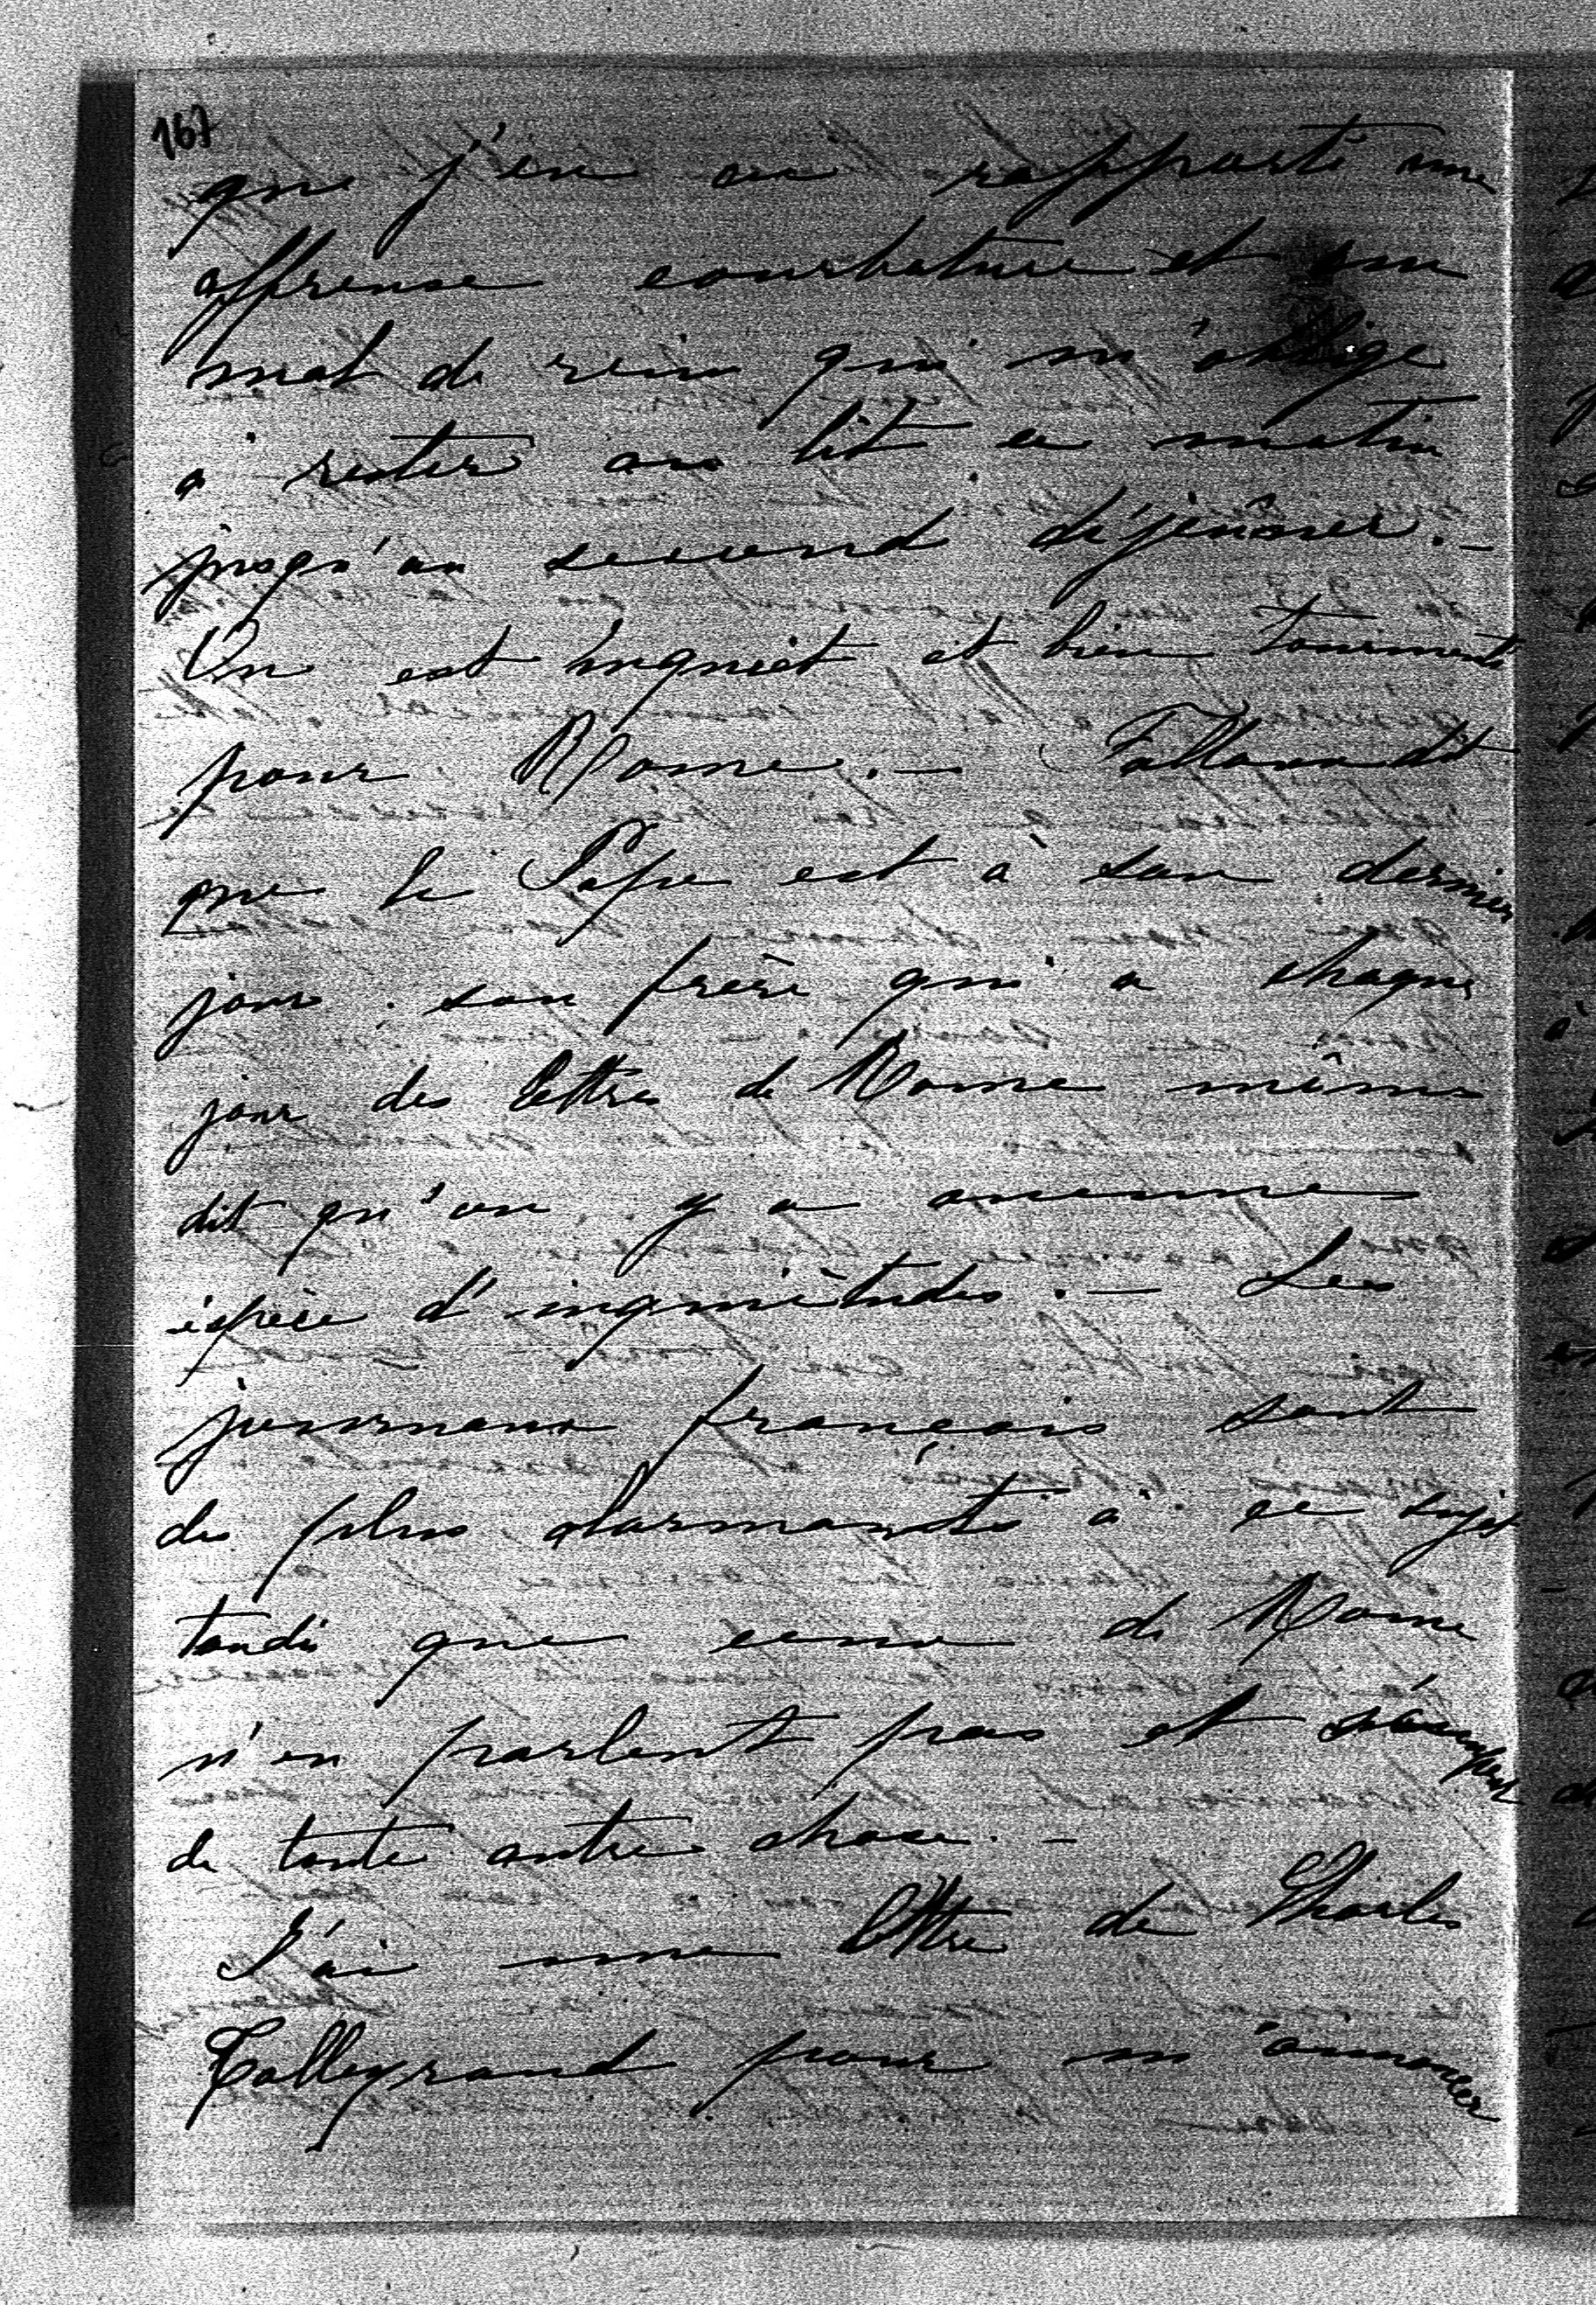 167
que j'en ai rapporté une
affreuse courbature et un
mal de reins qui m'oblige
à rester au lit ce matin
jusqu'au second déjeûner. —
On est inquiet et bien tourmenté
pour Rome. — Falloux dit
que le Pape est à son dernier
jour. son frère qui a chaque
jour des lettres de Rome même
dit qu'on y a aucune
espèce d'inquiétudes. — Les
journaux français sont
des plus alarmants à ce sujet
tandis que ceux de Rome
n'en parlent pas et s'occupent
de toute autre chose. —
J'ai une lettre de Charles
Talleyrand pour m'annoncer